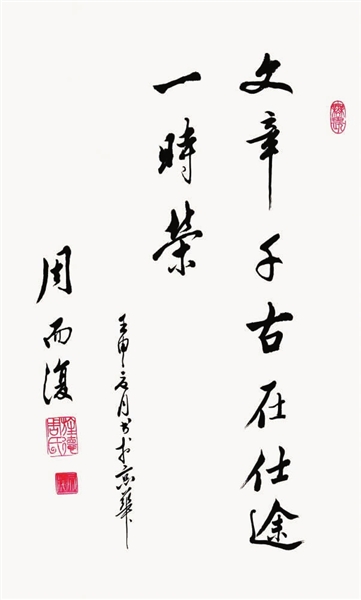 文章千古在仕途
一時榮
壬申二月书於京華
周而復